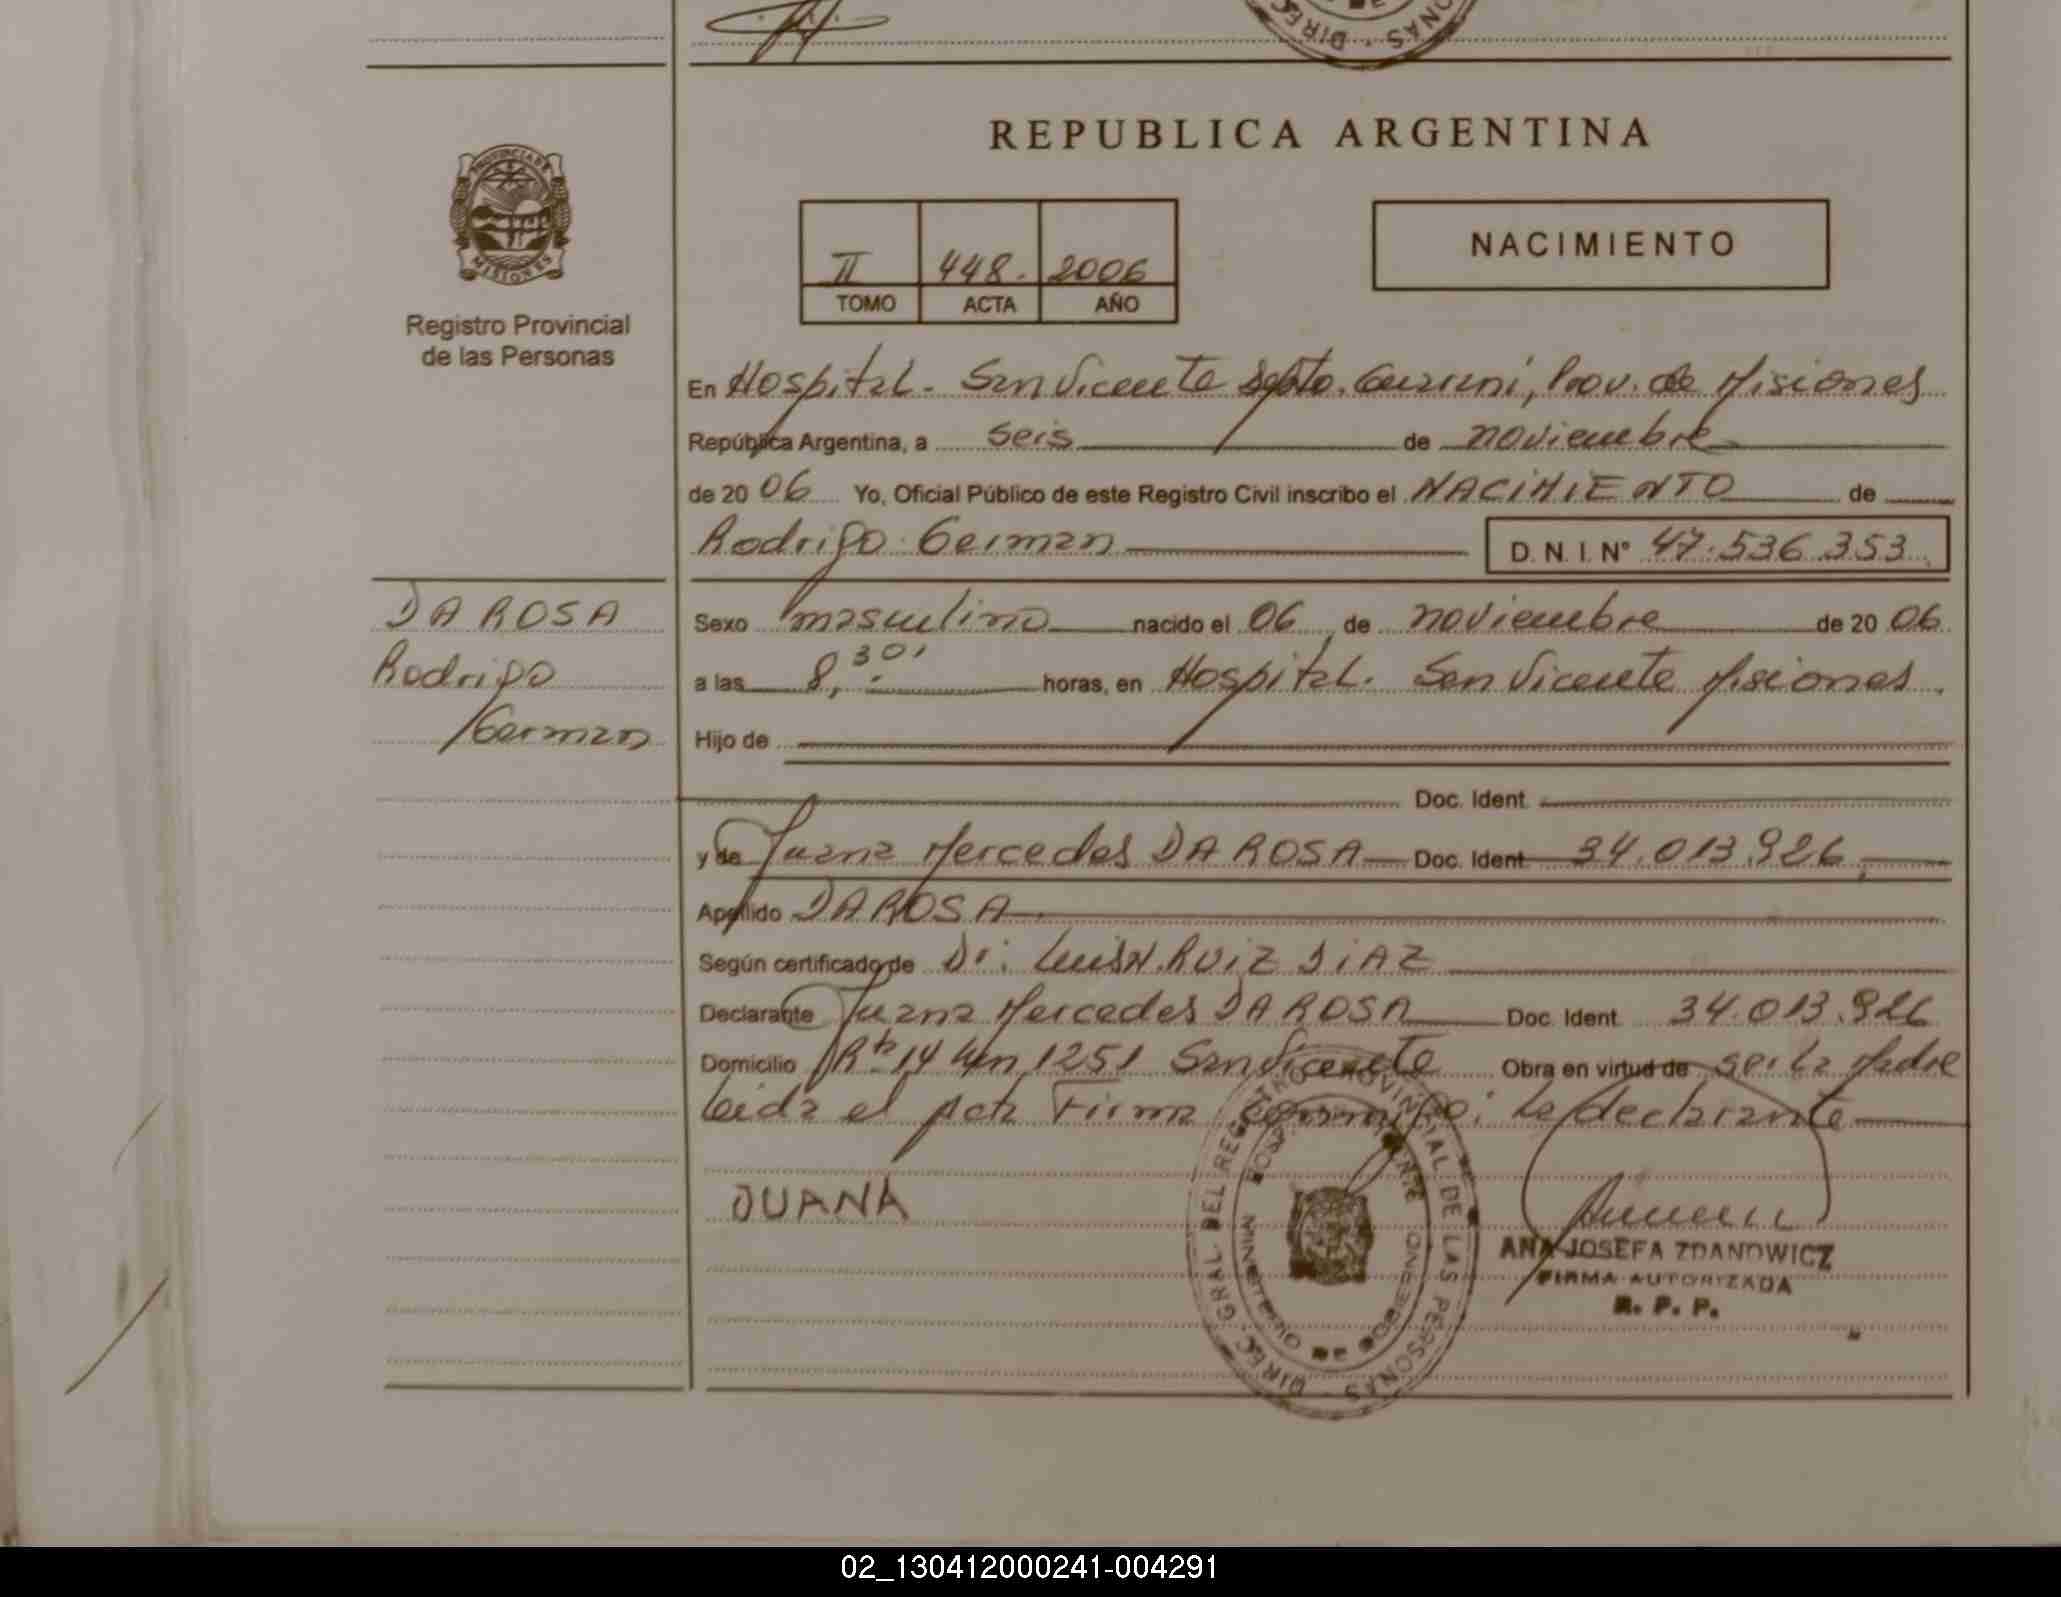 REPUBLICA ARGENTINA
PROVINCIA DE
MISIONES
Registro Provincial
de las Personas
II 448. 2006
TOMO ACTA AÑO
NACIMIENTO
En Hospital. San Vicente Depto. Guarani, Prov. de Misiones
República Argentina, a seis de noviembre
de 20 06 Yo, Oficial Público de este Registro Civil inscribo el NACIMIENTO de
Rodrigo German D. N. I. N° 47.536.353
DA ROSA
Rodrigo
German
Sexo masculino nacido el 06 de noviembre de 20 06
a las 8,30' horas, en Hospital. San Vicente Misiones.
Hijo de
Doc. Ident.
y de Juana Mercedes DA ROSA Doc. Ident. 34.013.926
Apellido DA ROSA
Según certificado de Dr: Luis N. RUIZ DIAZ
Declarante Juana Mercedes DA ROSA Doc. Ident. 34.013.926
Domicilio Rta 14 Km 1251 San Vicente Obra en virtud de ser la Madre
Leida el Acta Firma conmigo: la declarante
JUANA
DIREC. GRAL DEL REGISTRO PROVINCIAL DE LAS PERSONAS
MINISTERIO DE GOBIERNO
ANA JOSEFA ZDANOWICZ
FIRMA AUTORIZADA
R. P. P.
02_130412000241-004291